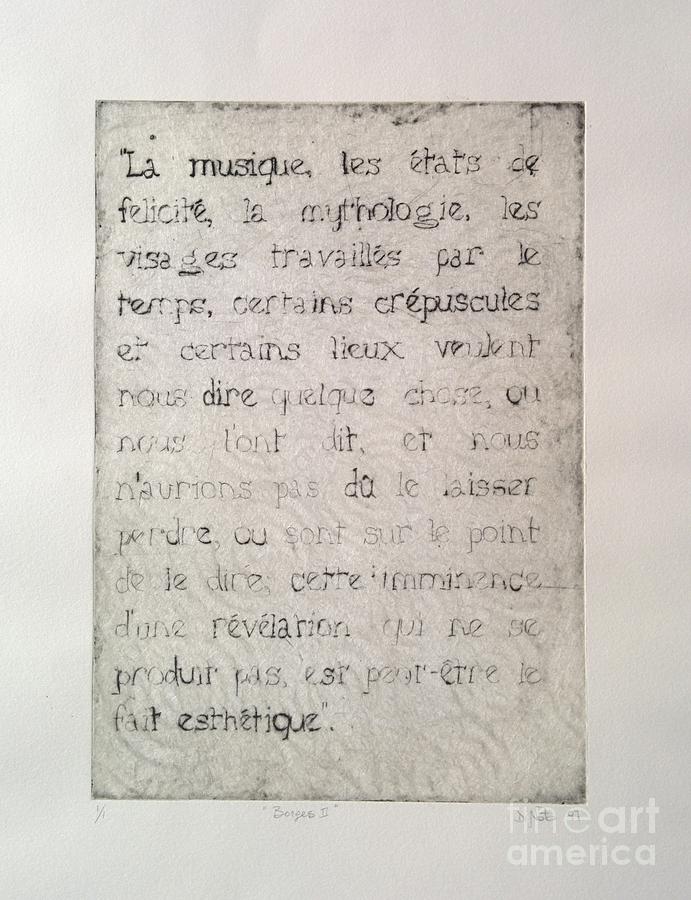 "La musique, les états de
felicité, la mythologie, les
visages travaillés par le
temps, certains crépuscules
et certains lieux veulent
nous dire quelque chose, ou
nous l'ont dit, et nous
n'aurions pas dû le laisser
perdre, ou sont sur le point
de le dire; cette imminence
d'une révélation qui ne se
produit pas, est peut-être le
fait esthétique".
1/1 "Borges II"
fine art
america